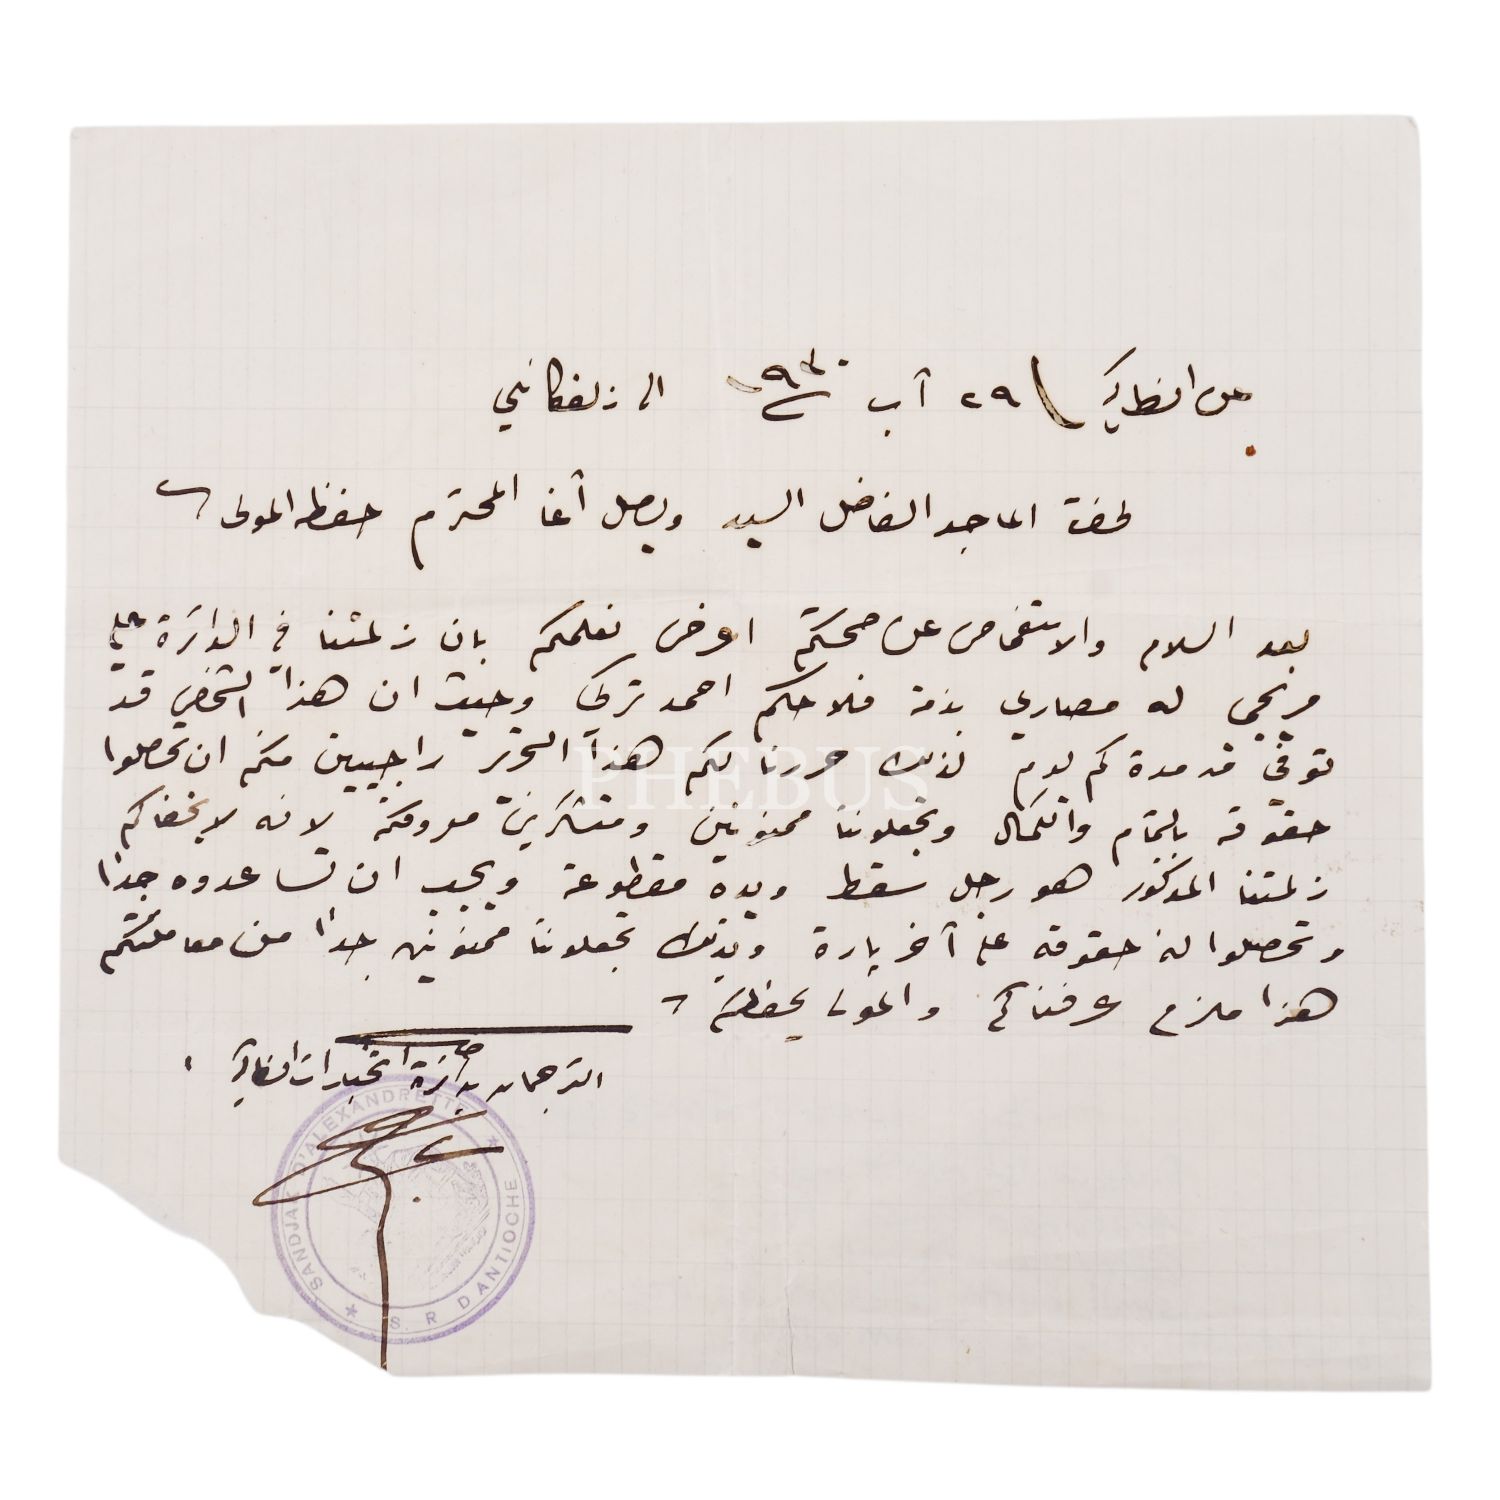 من انطاكية ٢٩ آب ٩٣٠ الى زلفكانلي
لحضرة الماجد الفاضل السيد ويصل آغا المحترم حفظه المولى
بعد السلام والاستفحاص عن صحتكم اعرض نعلمكم بان زلمتنا في الدائرة علي
مرنجي له مصاري بذمة فلاحكم احمد تركي وحيث ان هذا الشخص قد
توفي قد مدة كم يوم لذلك حررنا لكم هذا التحرير راجيين منكم ان تحصلوا
حقوقه بالتمام والكمال وتجعلوننا ممنونين ومتشكرين معروفكم لانه لا يخفاكم
زلمتنا المذكور هو رجل سقط ويده مقطوعة ويجب ان تساعدوه جداً
وتحصلوا له حقوقه على آخر بارة وبذلك تجعلوننا ممنونين جداً من معاملتكم
هذا ملزم عرفناكم والمولى يحفظكم
الترجمان بدائرة استخبارات انطاكية
SANDJAK D'ALEXANDRETTE
S. R. D'ANTIOCHE
PHEBUS